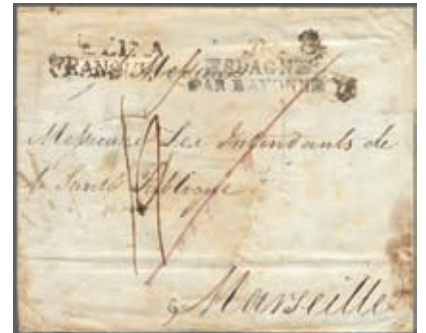 FRANCO
ESPAGNE
PAR BAYONNE
Messieurs Les Intendants de
la Santé Publique
à Marseille